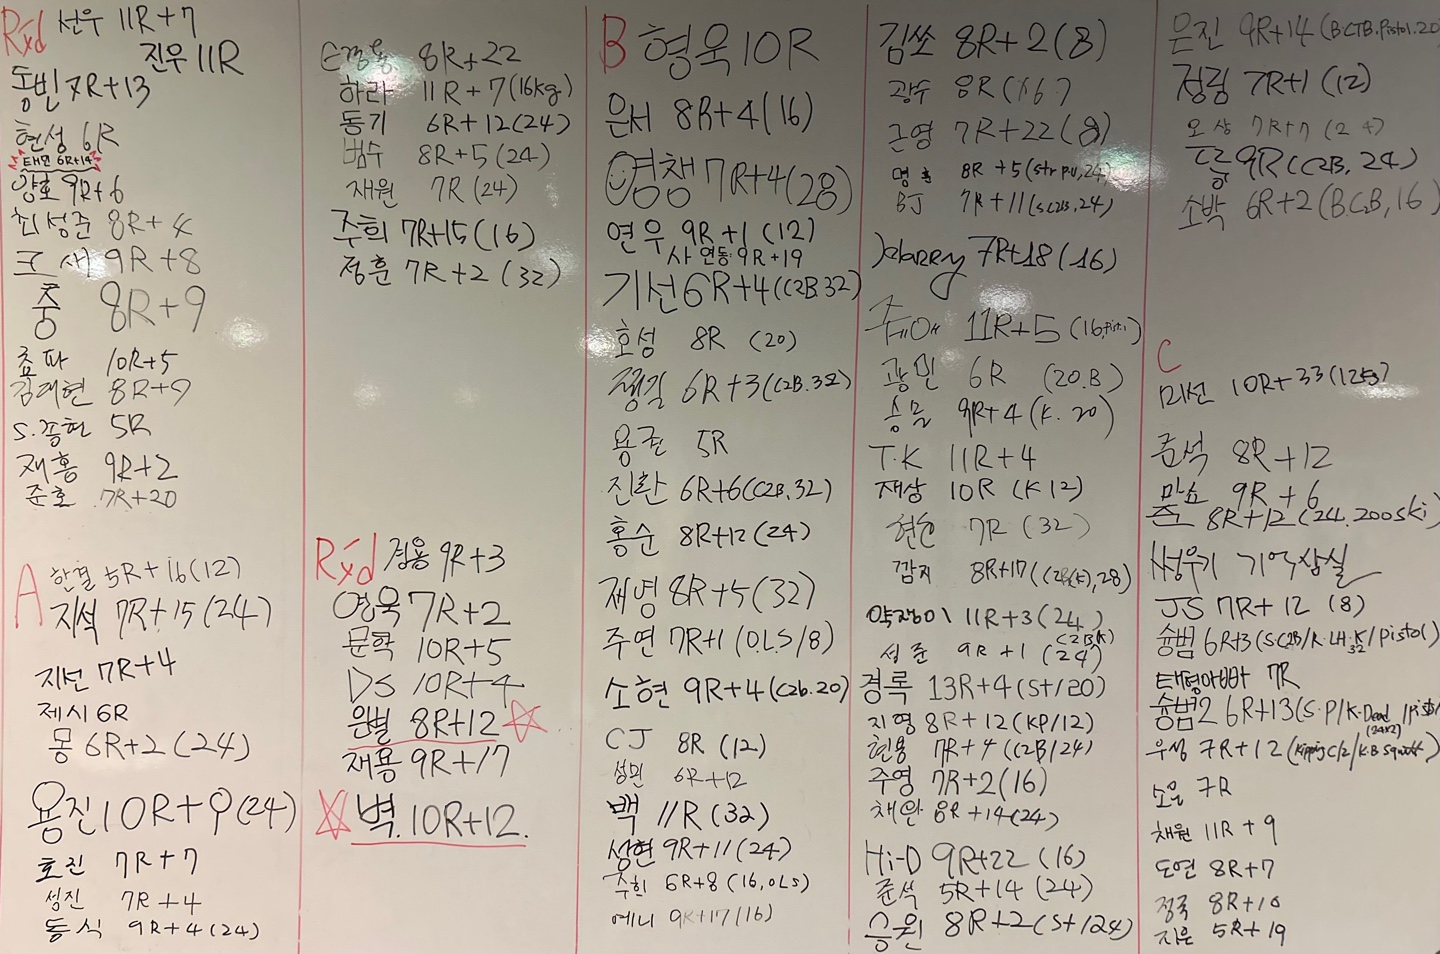 Rxd 선우 11R+7
진우 11R
동빈 7R+13
현성 6R
태민 6R+14
양호 9R+6
최성준 8R+4
크새 9R+8
중 8R+9
춈파 10R+5
김대현 8R+9
S.종현 5R
재홍 9R+2
준호 7R+20
A 한결 5R+16(12)
지석 7R+15(24)
지선 7R+4
제시 6R
몽 6R+2(24)
용진 10R+9(24)
호진 7R+7
성진 7R+4
동식 9R+4(24)
8R+22
하라 11R+7(16kg)
동기 6R+12(24)
범수 8R+5(24)
재원 7R(24)
주희 7R+15(16)
정훈 7R+2(32)
Rxd 경용 9R+3
영욱 7R+2
문학 10R+5
DS 10R+4
원별 8R+12
재용 9R+17
벽. 10R+12.
B 형욱 10R
은서 8R+4(16)
영챔 7R+4(28)
연우 9R+1(12)
사 연동 9R+19
기선 6R+4(C2B.32)
호성 8R (20)
정길 6R+3(C2B.32)
용준 5R
진환 6R+6(C2B.32)
홍순 8R+12(24)
재영 8R+5(32)
주연 7R+1(O.L.S/8)
소현 9R+4(C2b.20)
CJ 8R(12)
성민 6R+12
백 11R(32)
성현 9R+11(24)
주희 6R+8(16,OLS)
예니 9R+17(16)
김쏘 8R+2(8)
광수 8R
근영 7R+22(8)
명훈 8R+5(str pu,24)
BJ 7R+11(S.C2B,24)
Harry 7R+18(16)
11R+5
광민 6R (20.B)
승물 9R+4(K.20)
T.K 11R+4
재상 10R(K12)
현순 7R(32)
깜지 8R+17(C2B(K),28)
약쟁이 11R+3(24)
성준 9R+1(C2B(K) 24)
경록 13R+4(St/20)
지영 8R+12(KP/12)
현용 7R+4(C2B/24)
주영 7R+2(16)
채완 8R+14(24)
Hi-D 9R+22(16)
준석 5R+14(24)
승원 8R+2(St/24)
은진 9R+14(B.CTB.Pistol.20
정림 7R+1(12)
오상 7R+7(24)
9R(C2B,24)
소박 6R+2(B.C2B,16)
C
미선 10R+33(12kg)
준석 8R+12
만쇼 9R+6
8R+12(24.200ski)
성우기 기억상실
JS 7R+12(8)
슝범 6R+3(S.C2B/R.LH.K 32/Pistol)
태평아빠 7R
슝범2 6R+13(S.P/K.Dead (24x2)
우성 7R+12(Kipping C/2/K.B Squat)
소은 7R
채원 11R+9
도연 8R+7
정국 8R+10
지은 5R+19